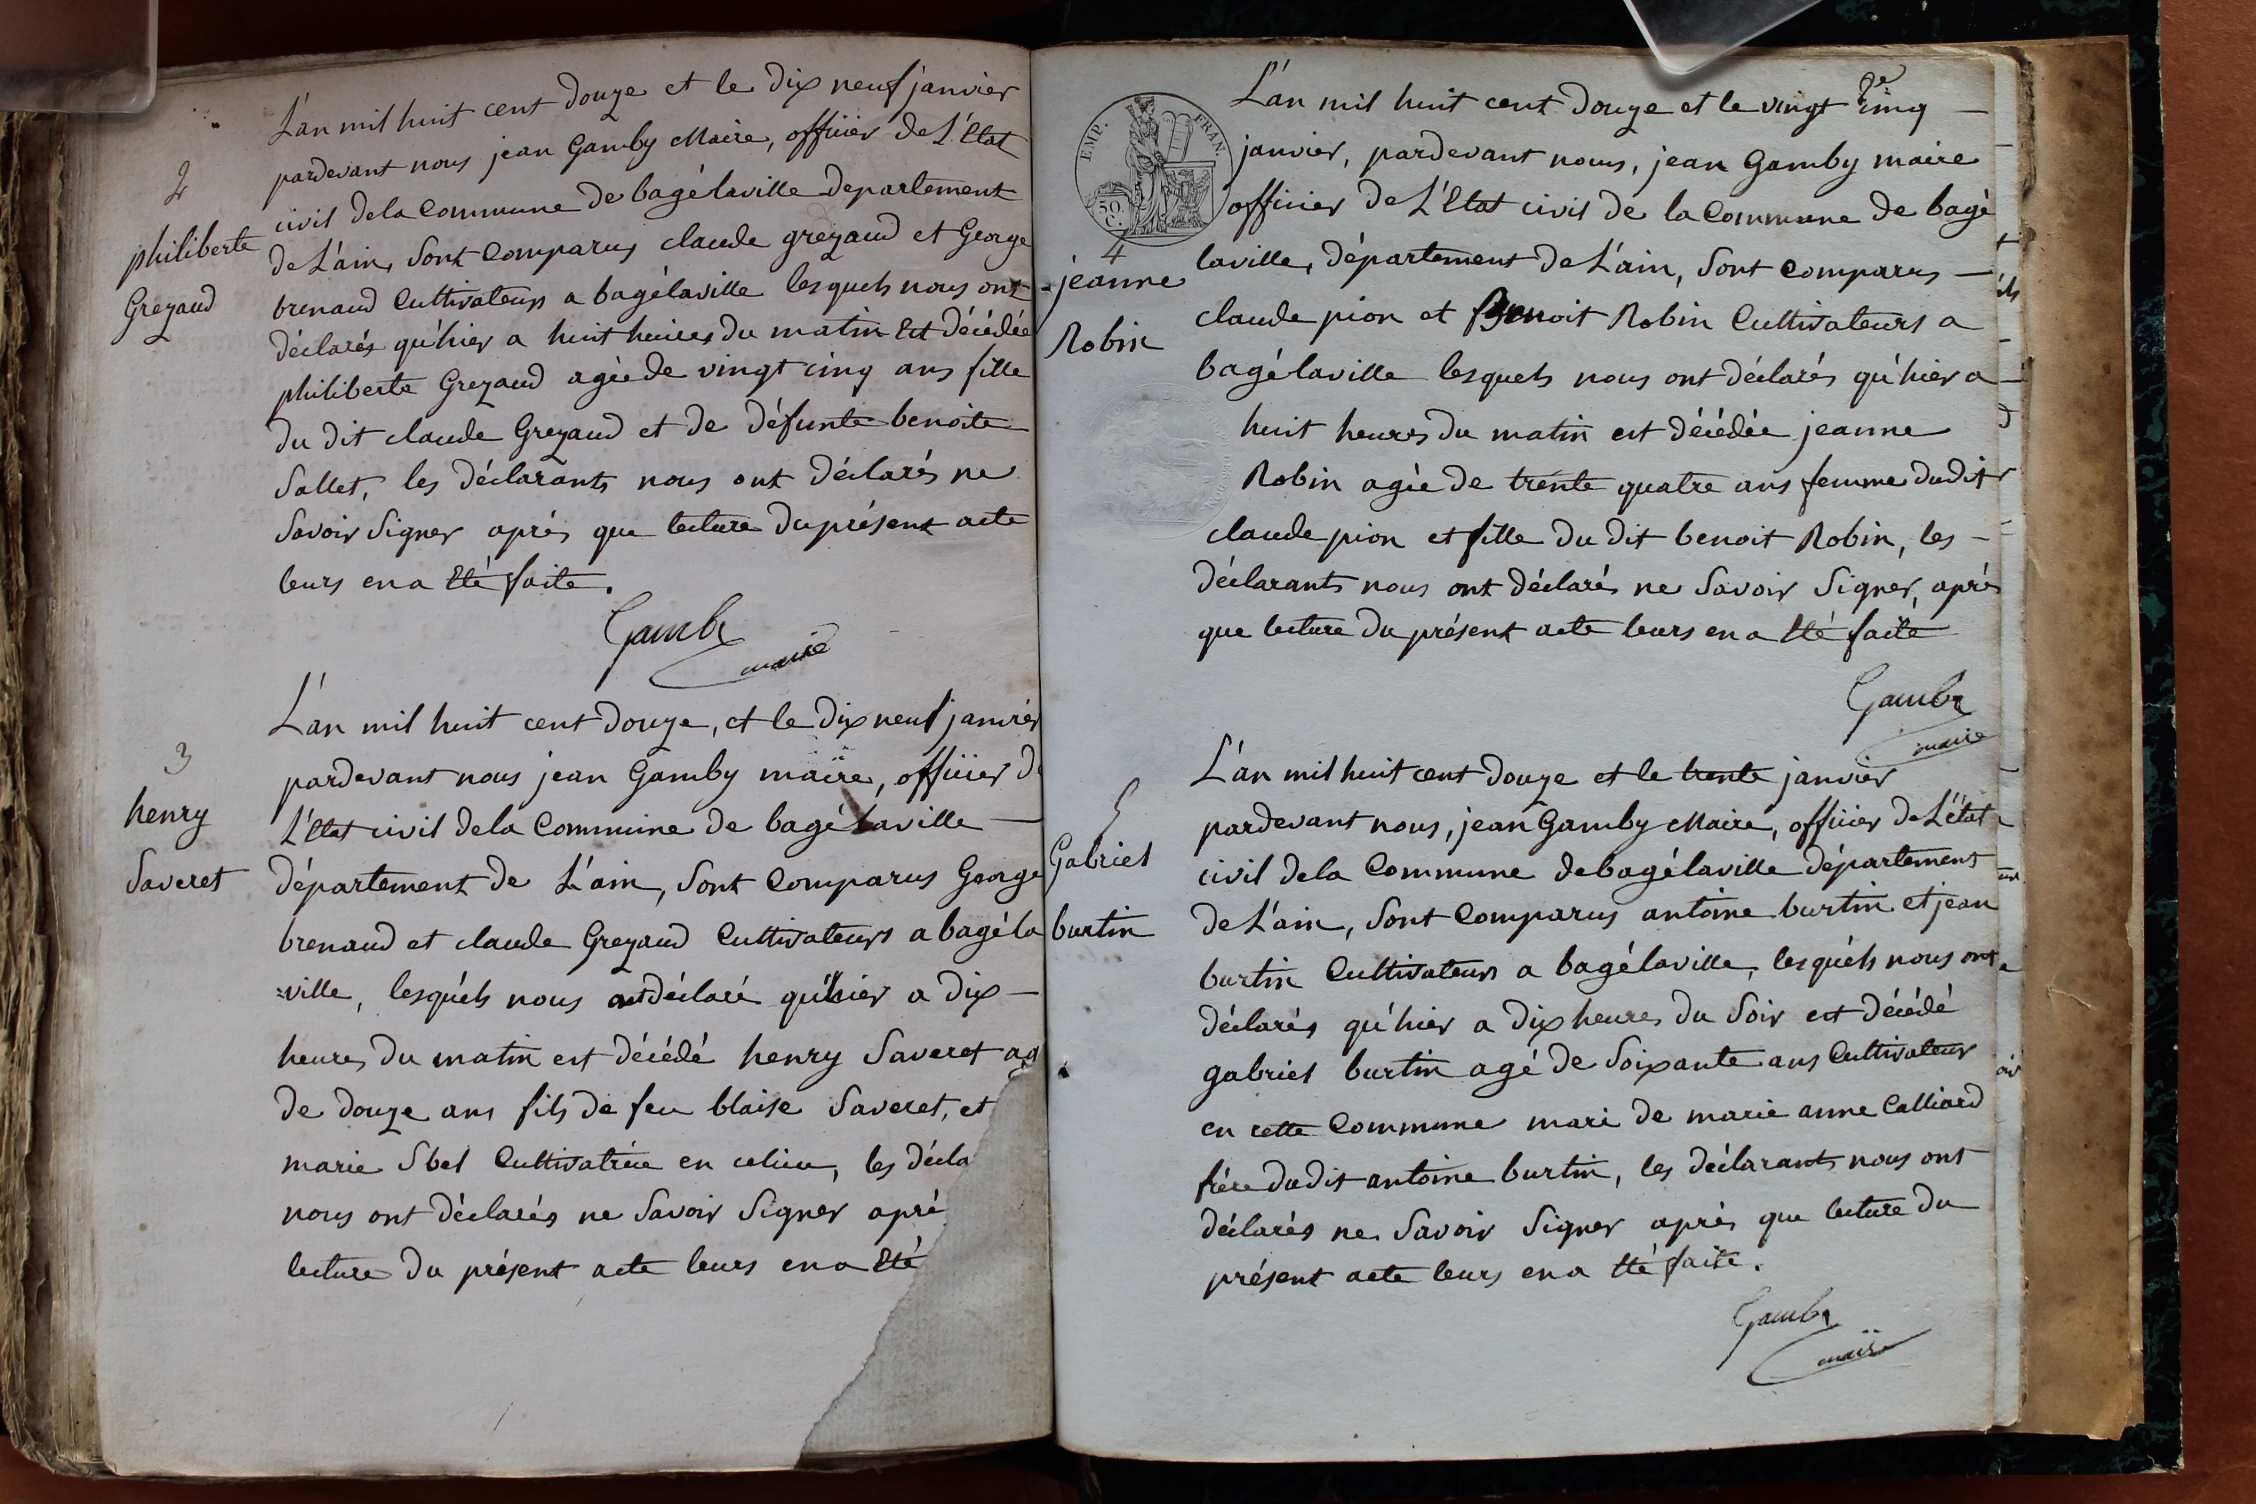 L'an mil huit cent douze et le dix neuf janvier
pardevant nous jean Gamby Maire, officier de L'Etat
civil dela Commune de bagélaville departement
de L'ain, Sont Comparus claude grezaud et George
brenaud Cultivateurs a bagélaville lesquels nous ont
déclarés qu'hier a huit heures du matin Est décédée
philiberte Grezaud agée de vingt cinq ans fille
du dit claude Grezaud et de défunte benoite
Sallet, les déclarants nous ont déclarés ne
Savoir Signer après que lecture du présent acte
leurs en a Eté faite.
2
philiberte
Grezaud
Gamby
maire
L'an mil huit cent douze, et le dix neuf janvier
pardevant nous jean Gamby maire, officier d
L'Etat civil dela Commune de bagélaville
département de L'ain, Sont Comparus George
brenaud et claude Grezaud Cultivateurs a bagéla
=ville, lesquéls nous ont déclaré qu'hier a dix
heures du matin est décédé henry Saveret ag
de douze ans fils de feu blaise Saveret, et
marie Sbel Cultivatrice en celieu, les décla
nous ont déclarés ne Savoir Signer aprè
lecture du présent acte leurs en a Eté
3
henry
Saveret
EMP. FRAN.
50 C.
L'an mil huit cent douze et le vingt cinq
janvier, pardevant nous, jean Gamby maire
officier de L'Etat civil de la Commune de bagé
laville, département de L'ain, Sont comparus
claude pion et Benoit Robin Cultivateurs a
bagélaville lesquels nous ont déclarés qu'hier a
huit heures du matin est décédée jeanne
Robin agée de trente quatre ans femme dudit
claude pion et fille du dit benoit Robin, les
déclarants nous ont déclarés ne Savoir Signer, après
que lecture du présent acte leurs en a Eté faite
4
jeanne
Robin
Gamby
maire
L'an mil huit cent douze et le trente janvier
pardevant nous, jean Gamby Maire, officier de L'état
civil dela Commune de bagélaville département
de L'ain, Sont Comparus antoine burtin et jean
burtin Cultivateurs a bagélaville, lesquéls nous ont
déclarés qu'hier a dix heures du Soir est décédé
gabriel burtin agé de Soixante ans Cultivateur
en cette Commune mari de marie anne Calliard
frére dudit antoine burtin, les déclarants nous ont
déclarés ne Savoir Signer après que lecture du
présent acte leurs en a Eté faite.
5
Gabriel
burtin
Gamby
maire